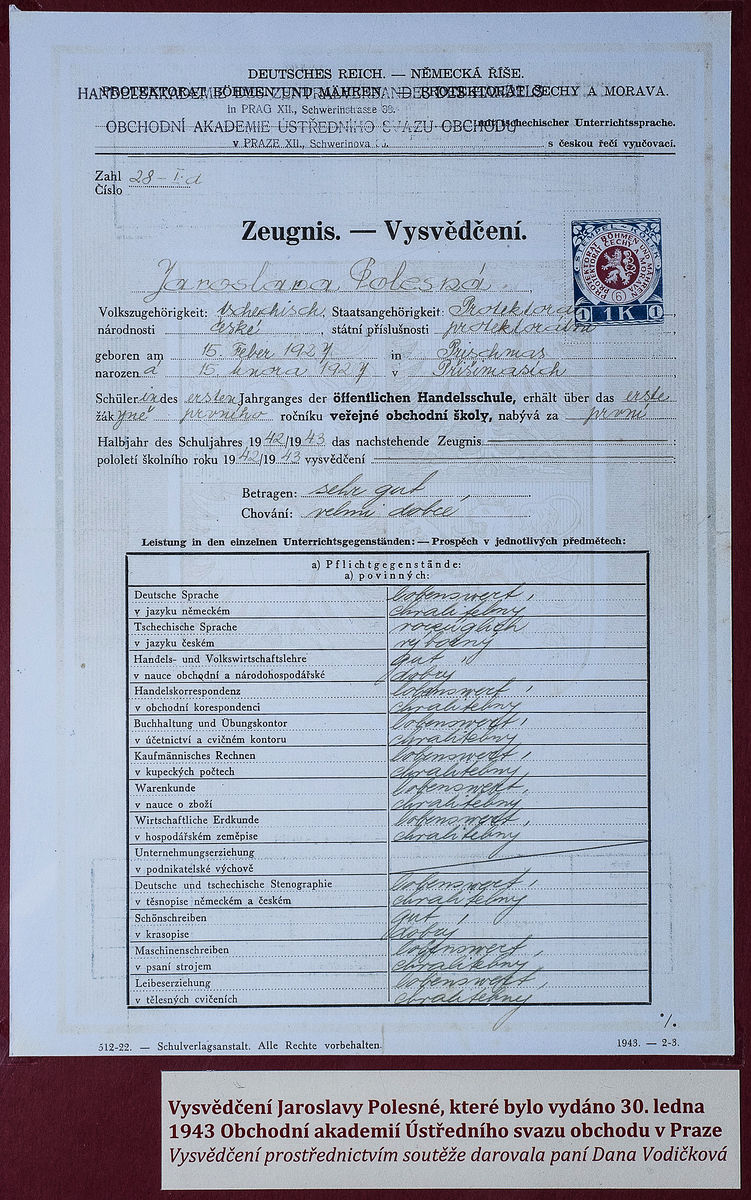 DEUTSCHES REICH. — NĚMECKÁ ŘÍŠE.
PROTEKTORAT BÖHMEN UND MÄHREN. — PROTEKTORÁT ČECHY A MORAVA.
HANDELSAKADEMIE DES ZENTRALVERBANDES DES HANDELS
in PRAG XII., Schwerinstrasse
mit tschechischer Unterrichtssprache.
OBCHODNÍ AKADEMIE ÚSTŘEDNÍHO SVAZU OBCHODU
v PRAZE XII., Schwerinova
s českou řečí vyučovací.
Zahl
Číslo 28 - I. d
Zeugnis. — Vysvědčení.
STEMPEL - KOLEK
PROTEKTORAT BÖHMEN UND MÄHREN
PROTEKTORÁT ČECHY A MORAVA
(6)
1 1K 1
Jaroslava Polesná.
Volkszugehörigkeit: tschechisch, Staatsangehörigkeit: Protektorat
národnosti české, státní příslušnosti protektorátní
geboren am 15. Feber 1927 in Prischmas
narozená 15. února 1927 v Přišimasích
Schülerin des ersten Jahrganges der öffentlichen Handelsschule, erhält über das erste
žákyně prvního ročníku veřejné obchodní školy, nabývá za první
Halbjahr des Schuljahres 1942/1943 das nachstehende Zeugnis :
pololetí školního roku 1942/1943 vysvědčení
Betragen: sehr gut,
Chování: velmi dobré
Leistung in den einzelnen Unterrichtsgegenständen: — Prospěch v jednotlivých předmětech:
a) Pflichtgegenstände:
a) povinných:
Deutsche Sprache lobenswert,
v jazyku německém chvalitebný
Tschechische Sprache vorzüglich
v jazyku českém výborný
Handels- und Volkswirtschaftslehre gut,
v nauce obchodní a národohospodářské dobrý
Handelskorrespondenz lobenswert,
v obchodní korespondenci chvalitebný
Buchhaltung und Übungskontor lobenswert,
v účetnictví a cvičném kontoru chvalitebný
Kaufmännisches Rechnen lobenswert,
v kupeckých počtech chvalitebný
Warenkunde lobenswert,
v nauce o zboží chvalitebný
Wirtschaftliche Erdkunde lobenswert,
v hospodářském zeměpise chvalitebný
Unternehmungserziehung
v podnikatelské výchově
Deutsche und tschechische Stenographie lobenswert,
v těsnopise německém a českém chvalitebný
Schönschreiben gut,
v krasopise dobrý
Maschinenschreiben lobenswert,
v psaní strojem chvalitebný
Leibeserziehung lobenswert,
v tělesných cvičeních chvalitebný
•/.
512-22. — Schulverlagsanstalt. Alle Rechte vorbehalten.
1943. — 2-3.
Vysvědčení Jaroslavy Polesné, které bylo vydáno 30. ledna
1943 Obchodní akademií Ústředního svazu obchodu v Praze
Vysvědčení prostřednictvím soutěže darovala paní Dana Vodičková